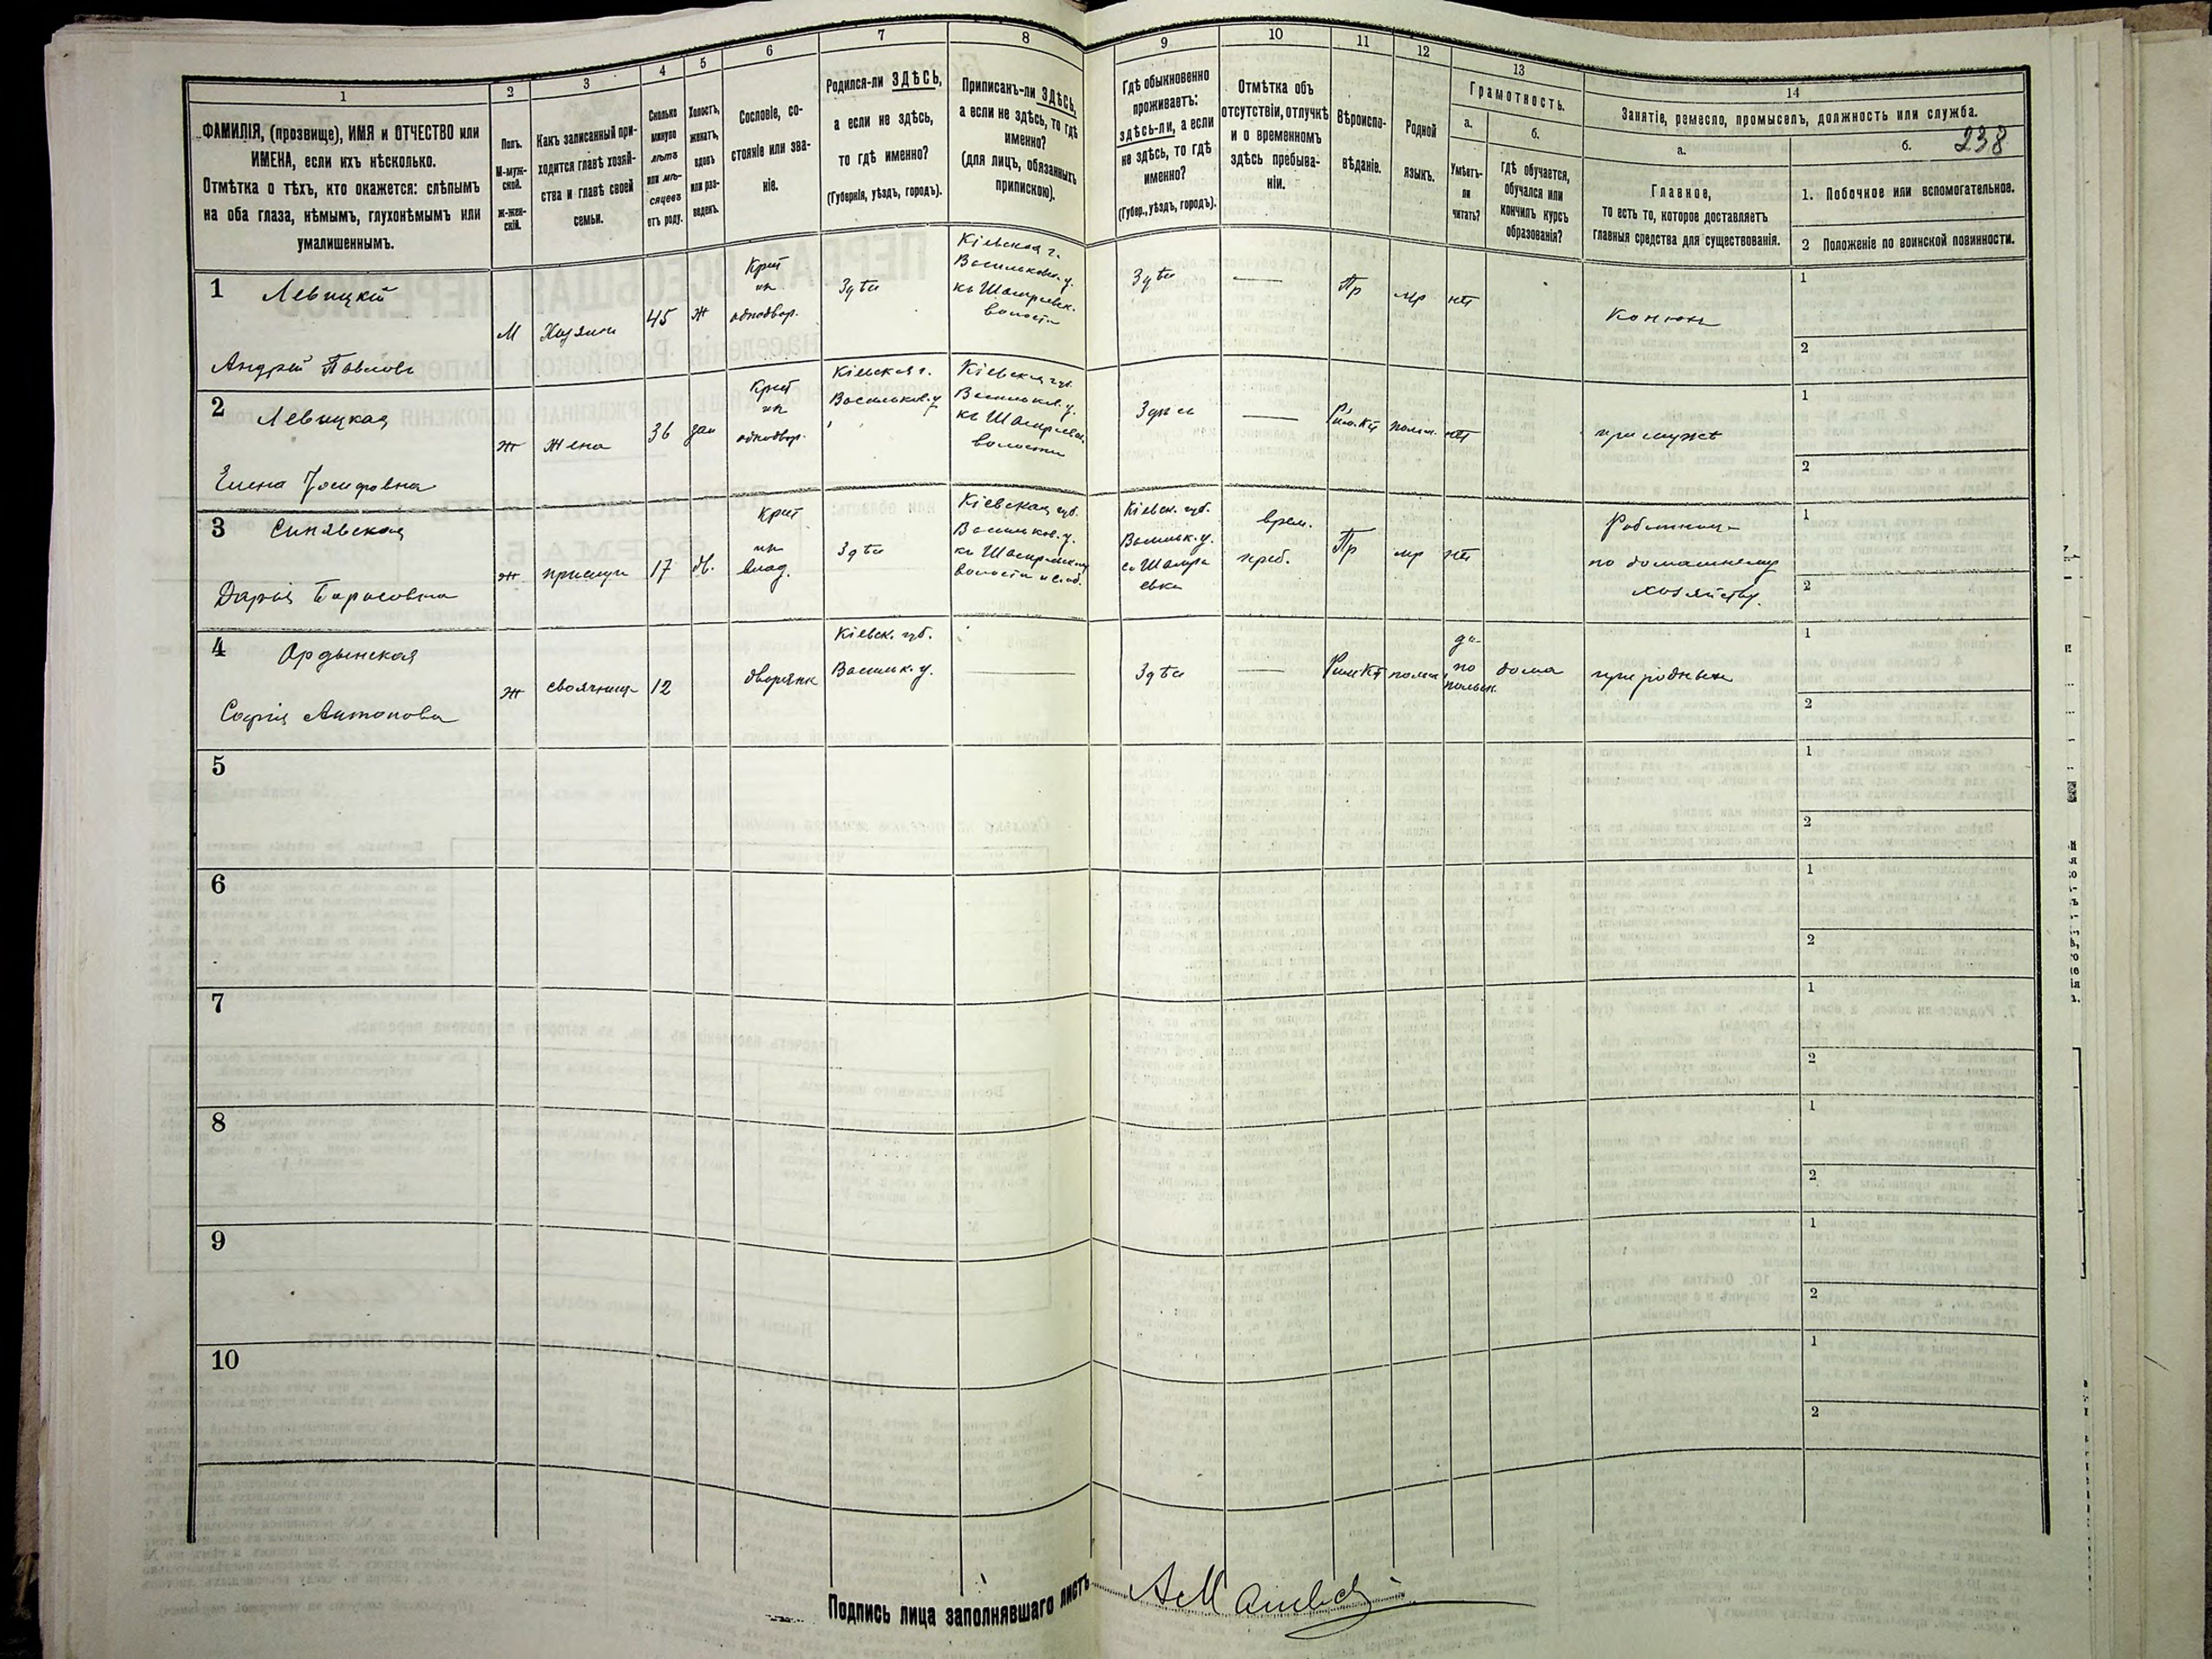 1
2
3
4
5
6
7
8
9
10
11
12
13
14
ФАМИЛІЯ, (прозвище), ИМЯ и ОТЧЕСТВО или
ИМЕНА, если ихъ нѣсколько.
Отмѣтка о тѣхъ, кто окажется: слѣпымъ
на оба глаза, нѣмымъ, глухонѣмымъ или
умалишеннымъ.
Полъ.
М-муж-
ской.
Ж-жен-
скій.
Какъ записанный при-
ходится главѣ хозяй-
ства и главѣ своей
семьи.
Сколько
минуло
лѣтъ
или мѣ-
сяцевъ
отъ роду.
Холостъ,
женатъ,
вдовъ
или раз-
веденъ.
Сословіе, со-
стояніе или зва-
ніе.
Родился-ли ЗДѢСЬ,
а если не здѣсь,
то гдѣ именно?
(Губернія, уѣздъ, городъ).
Приписанъ-ли ЗДѢСЬ,
а если не здѣсь, то гдѣ
именно?
(для лицъ, обязанныхъ
припискою).
Гдѣ обыкновенно
проживаетъ:
здѣсь-ли, а если
не здѣсь, то гдѣ
именно?
(Губер., уѣздъ, городъ).
Отмѣтка объ
отсутствіи, отлучкѣ
и о временномъ
здѣсь пребыва-
ніи.
Вѣроиспо-
вѣданіе.
Родной
языкъ.
Грамотность.
а.
Умѣетъ-
ли
читать?
б.
гдѣ обучается,
обучался или
кончилъ курсъ
образованія?
Занятіе, ремесло, промыселъ, должность или служба.
238
а.
Главное,
то есть то, которое доставляетъ
главныя средства для существованія.
б.
1. Побочное или вспомогательное.
2 Положеніе по воинской повинности.
1
Левицкій
Андрей Павловъ
М
Хозяинъ
45
ж
Крест
из
однодвор.
Здѣсь
Кіевская г.
Васильковск. у.
волости
Здѣсь
—
Пр
мр
нѣт
Конюхъ
1
2
2
Левицкая
Елена Іосифовна
ж
жена
36
зам
Крест
из
однодвор.
Кіевская г.
Васильков. у
Кіевская губ.
Васильков. у.
волости
Здѣсь
—
Рим.Кт
польск.
нѣт
при мужѣ
1
2
3
Синявская
Дарія Тарасовна
ж
прислуга
17
дѣв.
Крест
из
влад.
Здѣсь
Кіевская губ.
Васильков. у.
волости
Кіевск. губ.
Васильк. у.
врем.
преб.
Пр
мр
нѣт
Работница
по домашнему
хозяйству.
1
2
4
Ордынская
Софія Антонова
ж
свояченица
12
дворянка
Кіевск. губ.
Васильк. у.
—
Здѣсь
—
Рим Кт
польск
да
по
польск.
дома
при родныхъ
1
2
5
1
2
6
1
2
7
1
2
8
1
2
9
1
2
10
1
2
Подпись лица заполнявшаго листъ